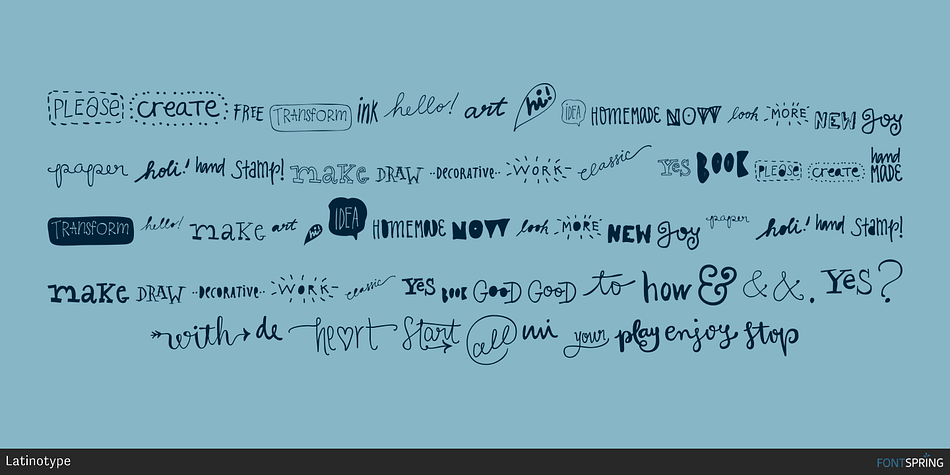 PLEASE create FREE TRANSFORM ink hello! art hi! IDEA HOMEMADE NOW look MORE NEW Joy
paper holi! hand Stamp! make DRAW ··DECORATIVE·· WORK classic Yes BOOK PLEASE create hand MADE
TRANSFORM hello! make art hi! IDEA HOMEMADE NOW look MORE NEW Joy paper holi! hand Stamp!
make DRAW ··DECORATIVE·· WORK classic Yes BOOK GOOD GOOD to how & & &. Yes?
with de heart Start all mi your play enjoy stop
Latinotype
FONTSPRING